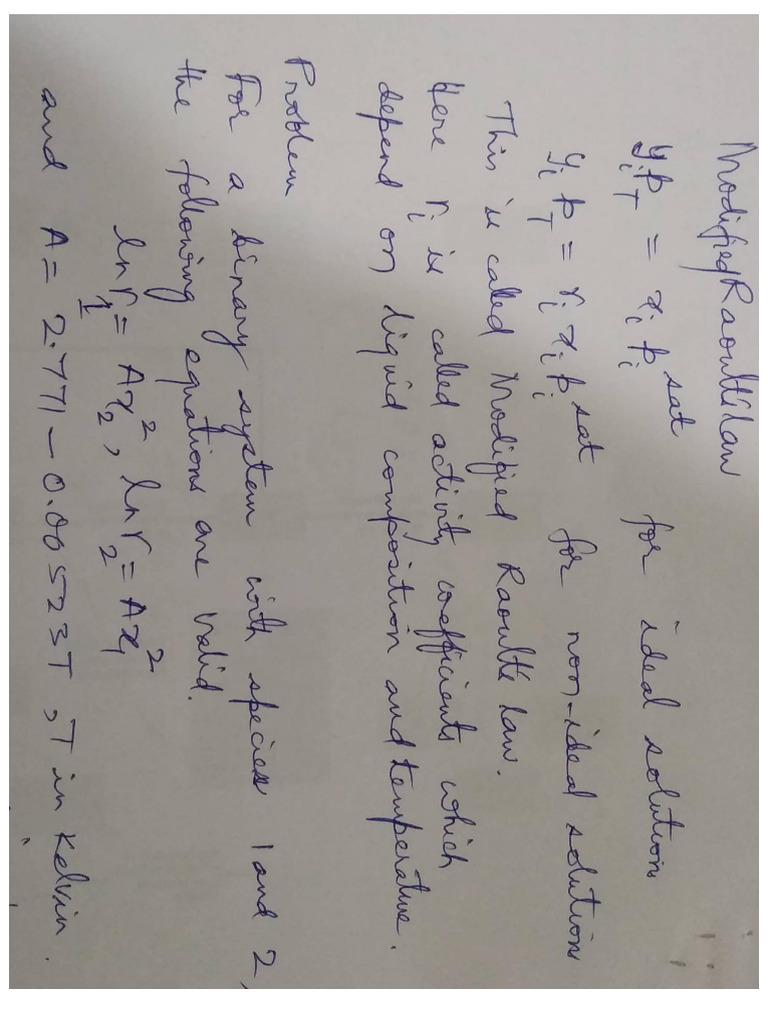 Modified Raoult's law
yᵢ p_T = xᵢ pᵢ^sat for ideal solution
yᵢ p_T = rᵢ xᵢ pᵢ^sat for non-ideal solution
This is called Modified Raoult's law.
Here rᵢ is called activity coefficients which
depend on liquid composition and temperature.
Problem
For a binary system with species 1 and 2,
the following equations are valid.
ln r₁ = Ax₂², ln r₂ = Ax₁²
and A = 2.771 - 0.00523T, T in Kelvin.